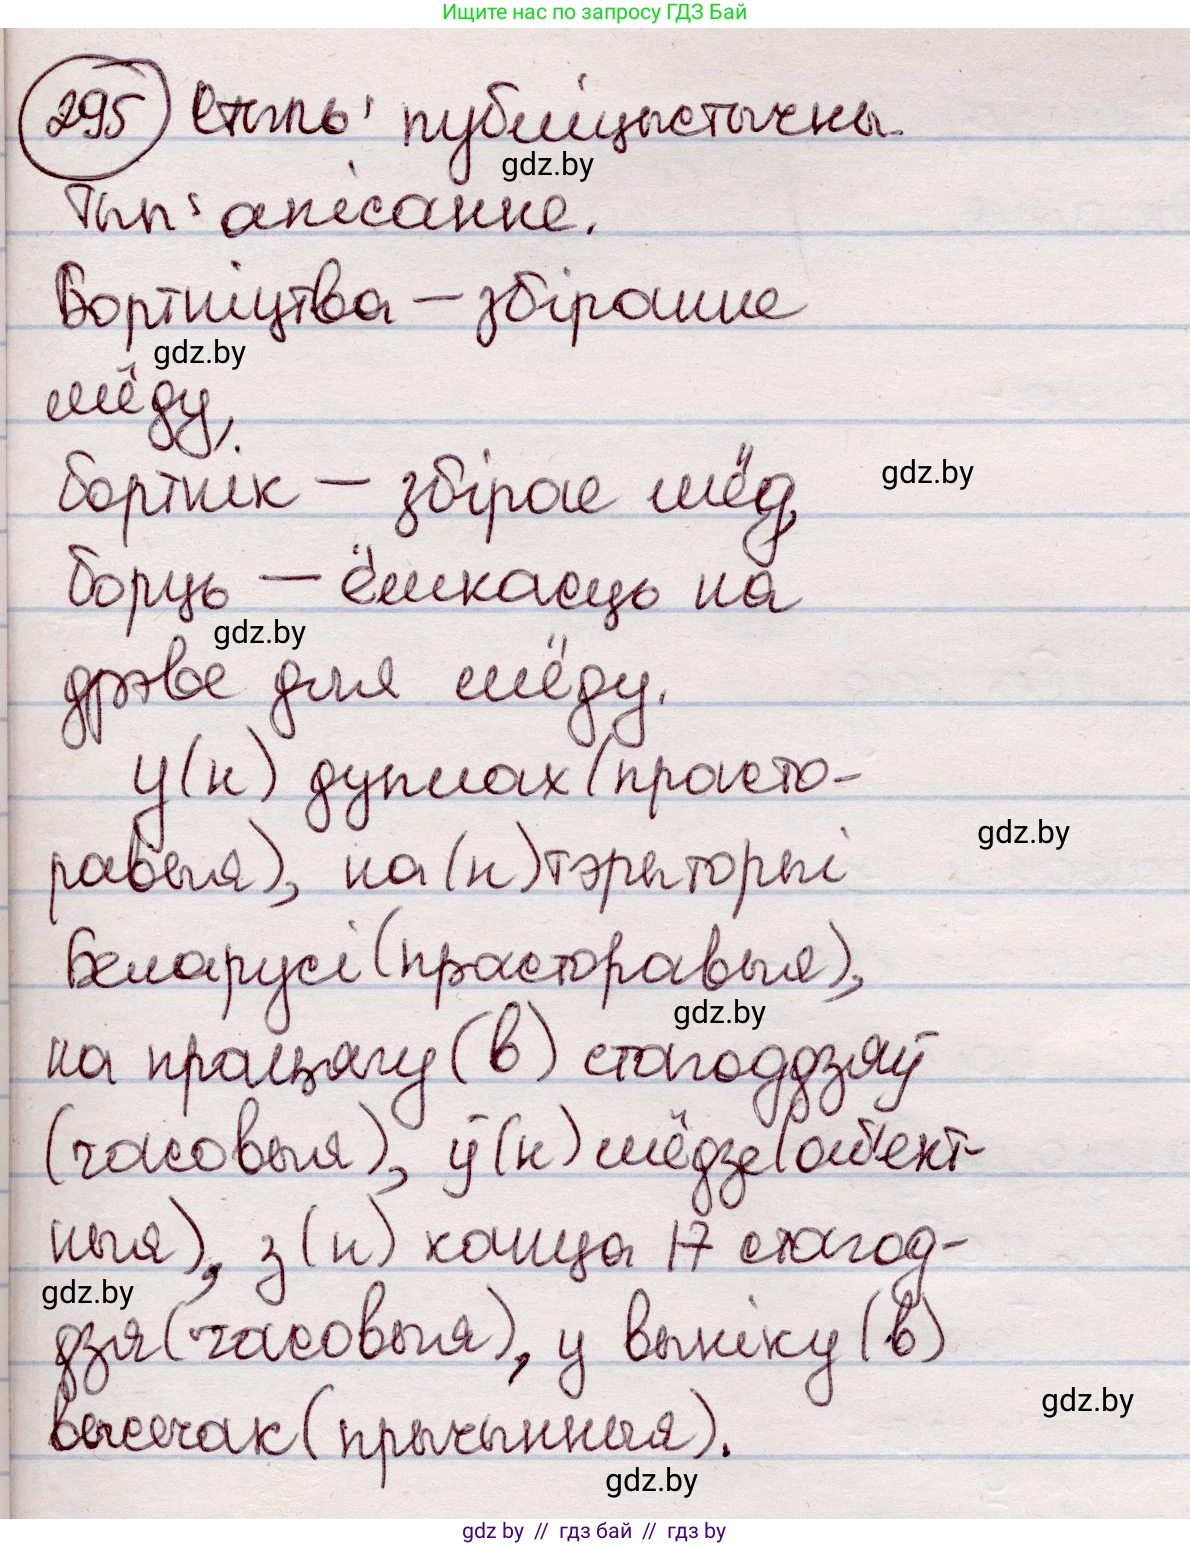 Ищите нас по запросу ГДЗ Бай
295 Стыль: публіцыстычны.
gdz.by
Тып: апісанне.
Бортніцтва – збіранне
gdz.by
мёду,
бортнік – збірае мёд,
gdz.by
борць – ёмкасць на
gdz.by
дрэве для мёду.
У(н) дуплах (прасто-
gdz.by
равыя), на(н) тэрыторыі
Беларусі (прасторавыя),
gdz.by
на працягу (в) стагоддзяў
(часовыя), ў(н) мёдзе (аб'ект-
ныя), з(н) канца 17 стагод-
gdz.by
дзя (часовыя), у выніку (в)
gdz.by
высечак (прычынныя).
gdz.by
gdz by // гдз бай // гдз by